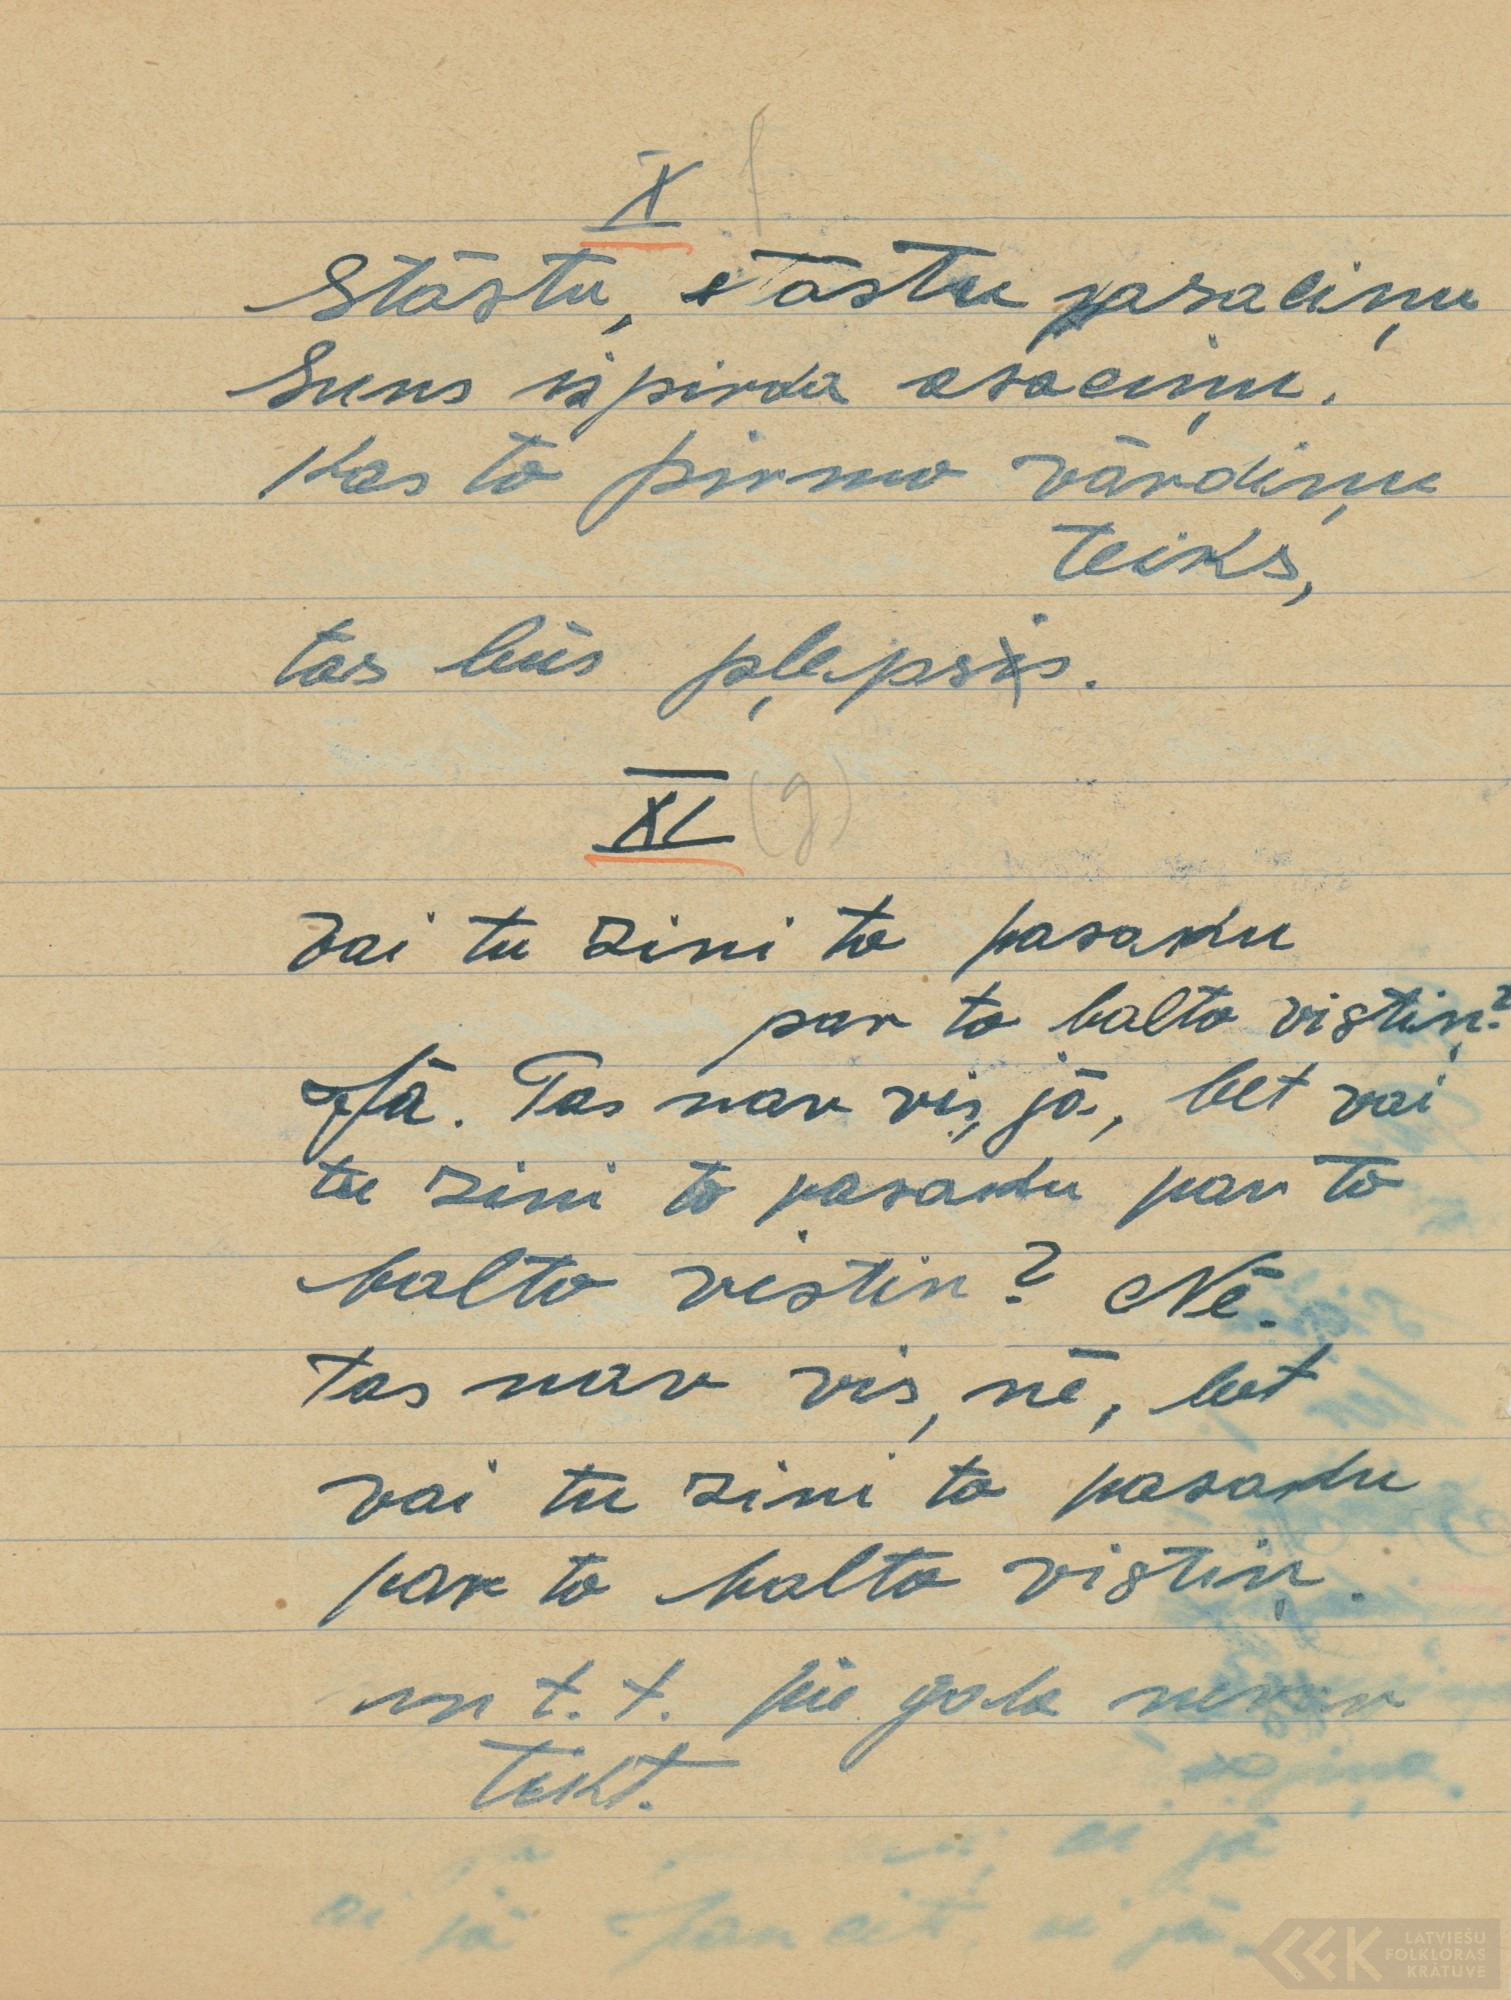 X f
Stāstu, stāstu pasaciņu
Suns izpirda asaciņu.
Kas to pirmo vārdiņu
teiks,
tas būs pļepsis.
XI (g)
Vai tu zini to pasaku
par to balto vistiņ?
Jā. Tas nav vis, jā, bet vai
tu zini to pasaku par to
balto vistin? Nē.
Tas nav vis, nē, bet
vai tu zini to pasaku
par to balto vistiņ.
un t. t. pie gala nevar
tikt.
LATVIEŠU
FOLKLORAS
KRĀTUVE